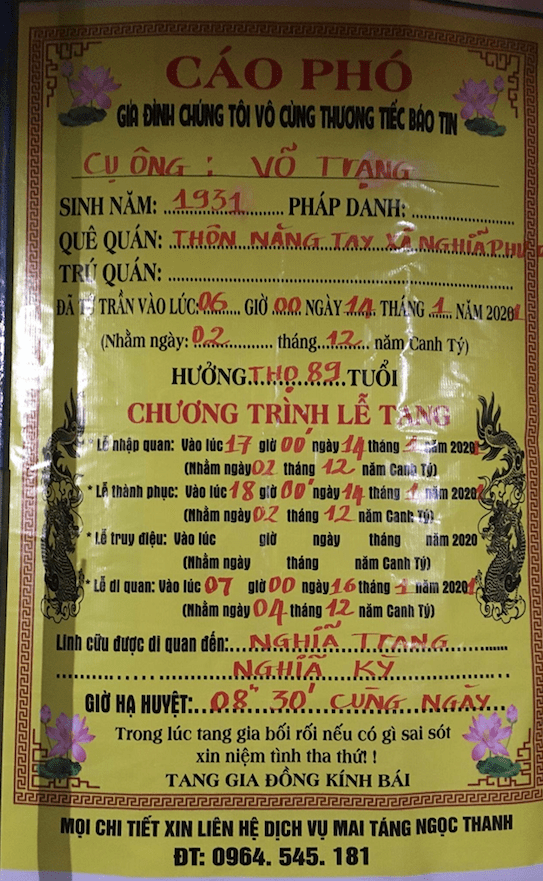 CÁO PHÓ
GIA ĐÌNH CHÚNG TÔI VÔ CÙNG THƯƠNG TIẾC BÁO TIN
CỤ ÔNG : VÕ TRẠNG
SINH NĂM: 1931 PHÁP DANH:
QUÊ QUÁN: THÔN NĂNG TAY XÃ NGHĨA PHƯƠNG
TRÚ QUÁN:
ĐÃ TỪ TRẦN VÀO LÚC: 06 GIỜ 00 NGÀY 14 THÁNG 1 NĂM 2021
(Nhằm ngày: 02 tháng 12 năm Canh Tý)
HƯỞNG THỌ 89 TUỔI
CHƯƠNG TRÌNH LỄ TANG
* Lễ nhập quan: Vào lúc 17 giờ 00' ngày 14 tháng 1 năm 2021
(Nhằm ngày 02 tháng 12 năm Canh Tý)
* Lễ thành phục: Vào lúc 18 giờ 00' ngày 14 tháng 1 năm 2021
(Nhằm ngày 02 tháng 12 năm Canh Tý)
* Lễ truy điệu: Vào lúc giờ ngày tháng năm 2020
(Nhằm ngày tháng năm Canh Tý)
* Lễ di quan: Vào lúc 07 giờ 00 ngày 16 tháng 1 năm 2021
(Nhằm ngày 04 tháng 12 năm Canh Tý)
Linh cữu được di quan đến: NGHĨA TRANG
NGHĨA KỲ
GIỜ HẠ HUYỆT: 08h 30' CÙNG NGÀY
Trong lúc tang gia bối rối nếu có gì sai sót
xin niệm tình tha thứ! !
TANG GIA ĐỒNG KÍNH BÁI
MỌI CHI TIẾT XIN LIÊN HỆ DỊCH VỤ MAI TÁNG NGỌC THANH
ĐT: 0964. 545. 181